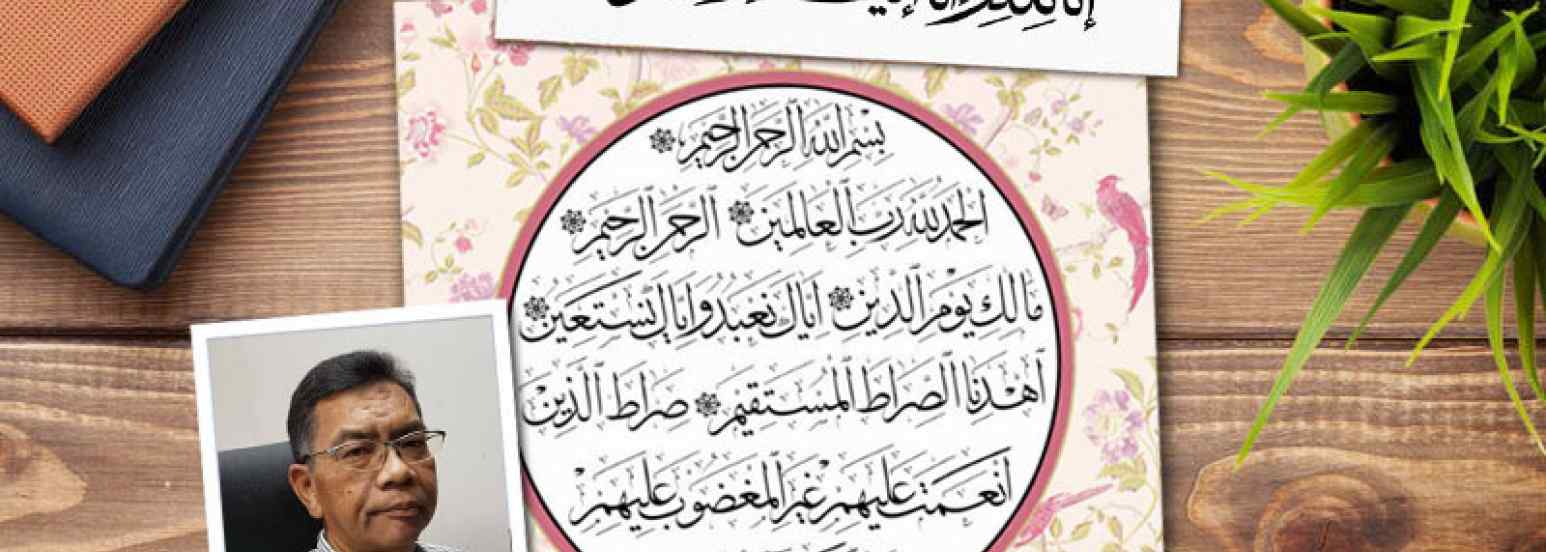 إنا لله وإنا إليه
بِسْمِ اللهِ الرَّحْمٰنِ الرَّحِيمِ
الْحَمْدُ لِلّٰهِ رَبِّ الْعَالَمِينَ الرَّحْمٰنِ الرَّحِيمِ
مَالِكِ يَوْمِ الدِّينِ اِيَّاكَ نَعْبُدُ وَاِيَّاكَ نَسْتَعِينُ
اهْدِنَا الصِّرَاطَ الْمُسْتَقِيمَ صِرَاطَ الَّذِينَ
أَنْعَمْتَ عَلَيْهِمْ غَيْرِ الْمَغْضُوبِ عَلَيْهِمْ